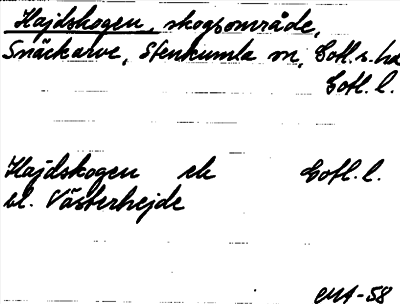 Hajdskogen, skogsområde,
Snäckarve, Stenkumla sn, Gotl. s. hd
Gotl. l.
Hajdskogen ek Gotl. l.
bl. Västerhejde
EMA-58